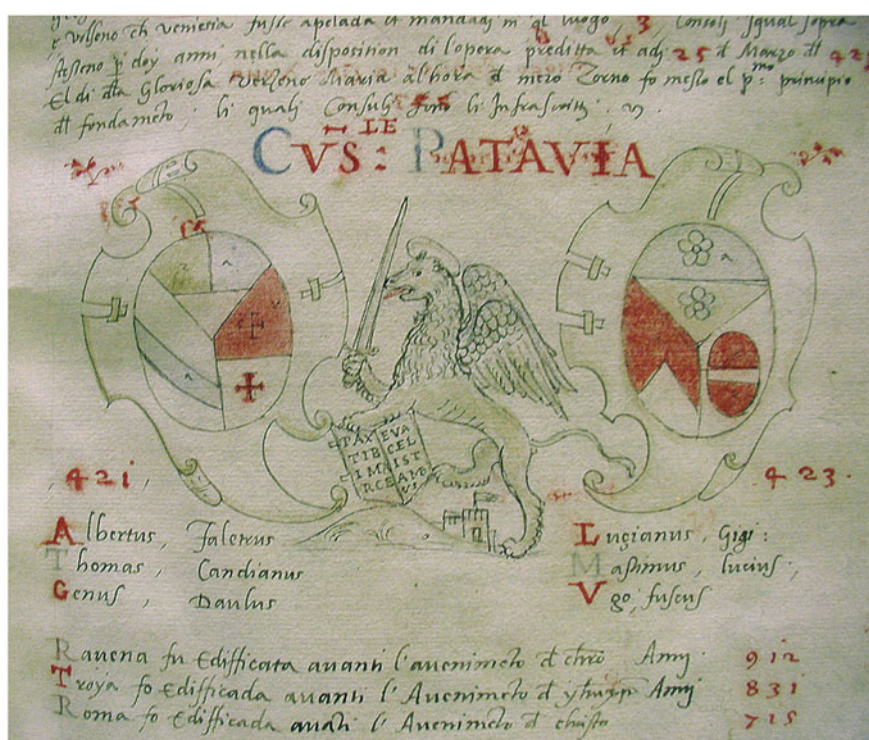 e Visseno ch veniesia fusse apelada et mandadj in ql luogo 3 Consolj Igual sopra
stesseno p doy anni nella disposition di l'opera preditta et adj 25 d Marzo dl 421
El di dla Gloriosa Verzeno Maria al hora d mezo Zorno fo messo el p.mo principio
dl fondameto, li qualj Consulj sono li Infrascritti
CVS:LE PATAVIA
PAX TIBI MARCE
EVA CEL IST AMB VS
421
423
Albertus, Faletrus
Thomas, Candianus
Genus, Daulus
Lugianus, Gigi:
Massimus, lucius,
Vgo, fuscus
Rauena fu Edifficata auanti l'auenimeto d chro Annj 912
Troja fo Edifficada auanti l'Auenimeto d Annj 831
Roma fo Edifficada auati l'Auenimeto d christo 715